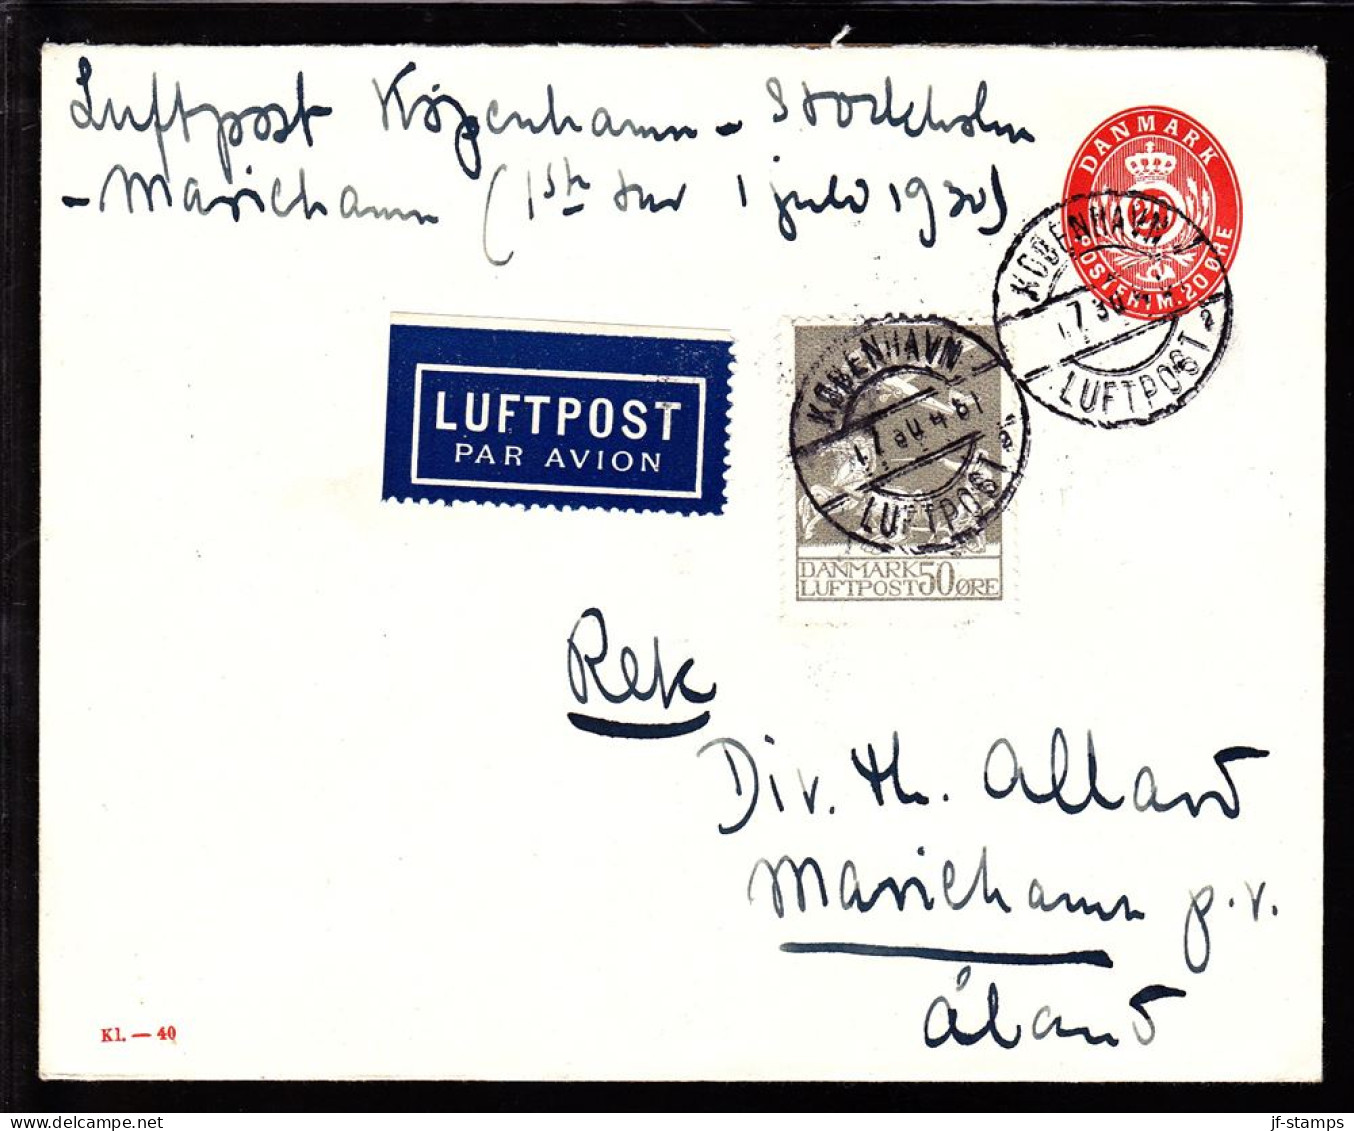 Luftpost Köpenhamn - Stockholm
- Mariehamn ( 1sta tur 1 juli 1930)
DANMARK
20
POSTFRIM. 20 ØRE
KØBENHAVN
1.7.30
LUFTPOST
LUFTPOST
PAR AVION
KØBENHAVN
1.7.30.
LUFTPOST
DANMARK
LUFTPOST 50 ØRE
Rek
Div. th. Allard
Mariehamn p.v.
Åland
Kl. — 40
www.delcampe.net
jf-stamps